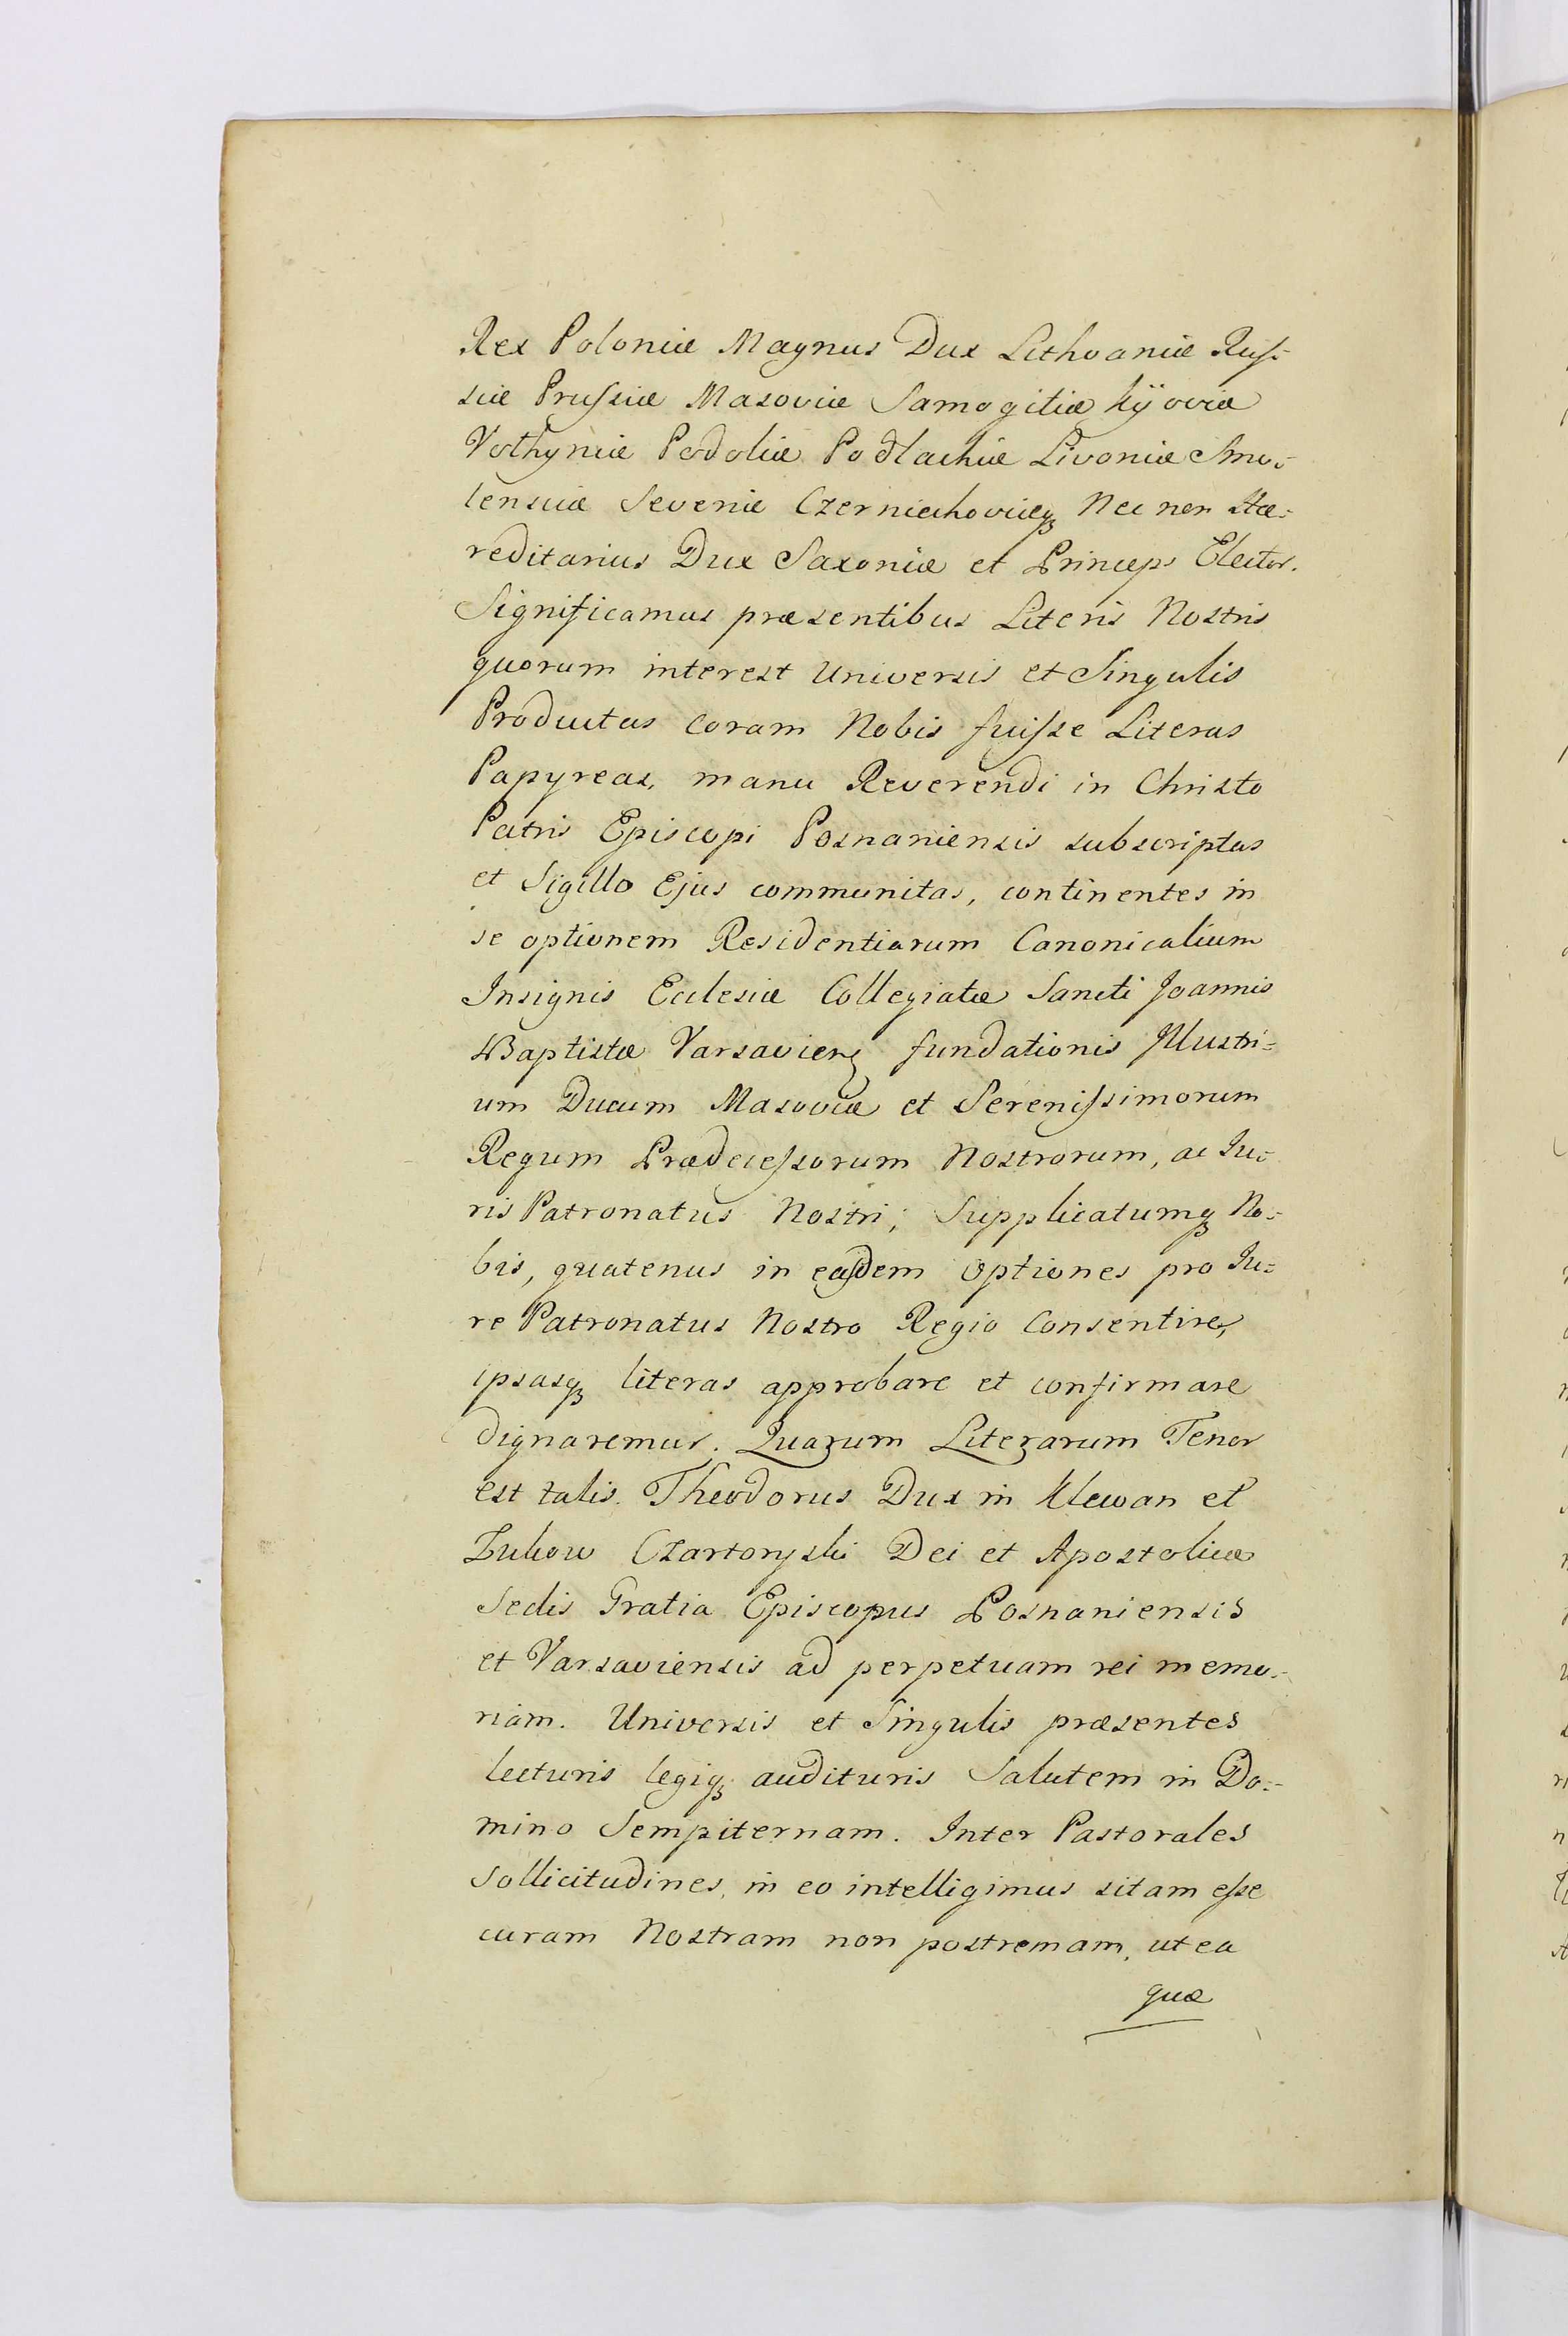 Rex Poloniæ Magnus Dux Lithvaniæ Rus-
siæ Prussiæ Masoviæ Samogitiæ Kÿoviæ
Volhyniæ Podoliæ Podlachiæ Livoniæ Smo-
lensciæ Seveniæ Czerniechoviæq₃ Nec non Hæ-
reditarius Dux Saxoniæ et Princeps Elector.
Significamus præsentibus Literis Nostris
quorum interest Universis et Singulis
Productas coram Nobis fuisse Literas
Papyreas, manu Reverendi in Christo
Patris Episcopi Posnaniensis subscriptas
et Sigillo Ejus communitas, continentes in
se optionem Residentiarum Canonicalium
Insignis Ecclesiæ Collegiatæ Sancti Joannis
Baptistæ Varsavien̄ fundationis Illustri=
um Ducum Masoviæ et Serenissimorum
Regum Prædecessorum Nostrorum, ac Ju=
ris Patronatus Nostri; Supplicatumq₃ No=
bis, quatenus in easdem optiones pro Ju=
re Patronatus Nostro Regio Consentire,
ipsasq₃ literas approbare et confirmare
dignaremur. Quarum Literarum Tenor
est talis. Theodorus Dux in Klewan et
Zukow Czartoryski Dei et Apostolicæ
Sedis Gratia Episcopus Posnaniensis
et Varsaviensis ad perpetuam rei memo-
riam. Universis et Singulis præsentes
lecturis legiq₃ audituris Salutem in Do=
mino Sempiternam. Inter Pastorales
Sollicitudines, in eo intelligimus sitam esse
curam Nostram non postremam, ut ea
quæ